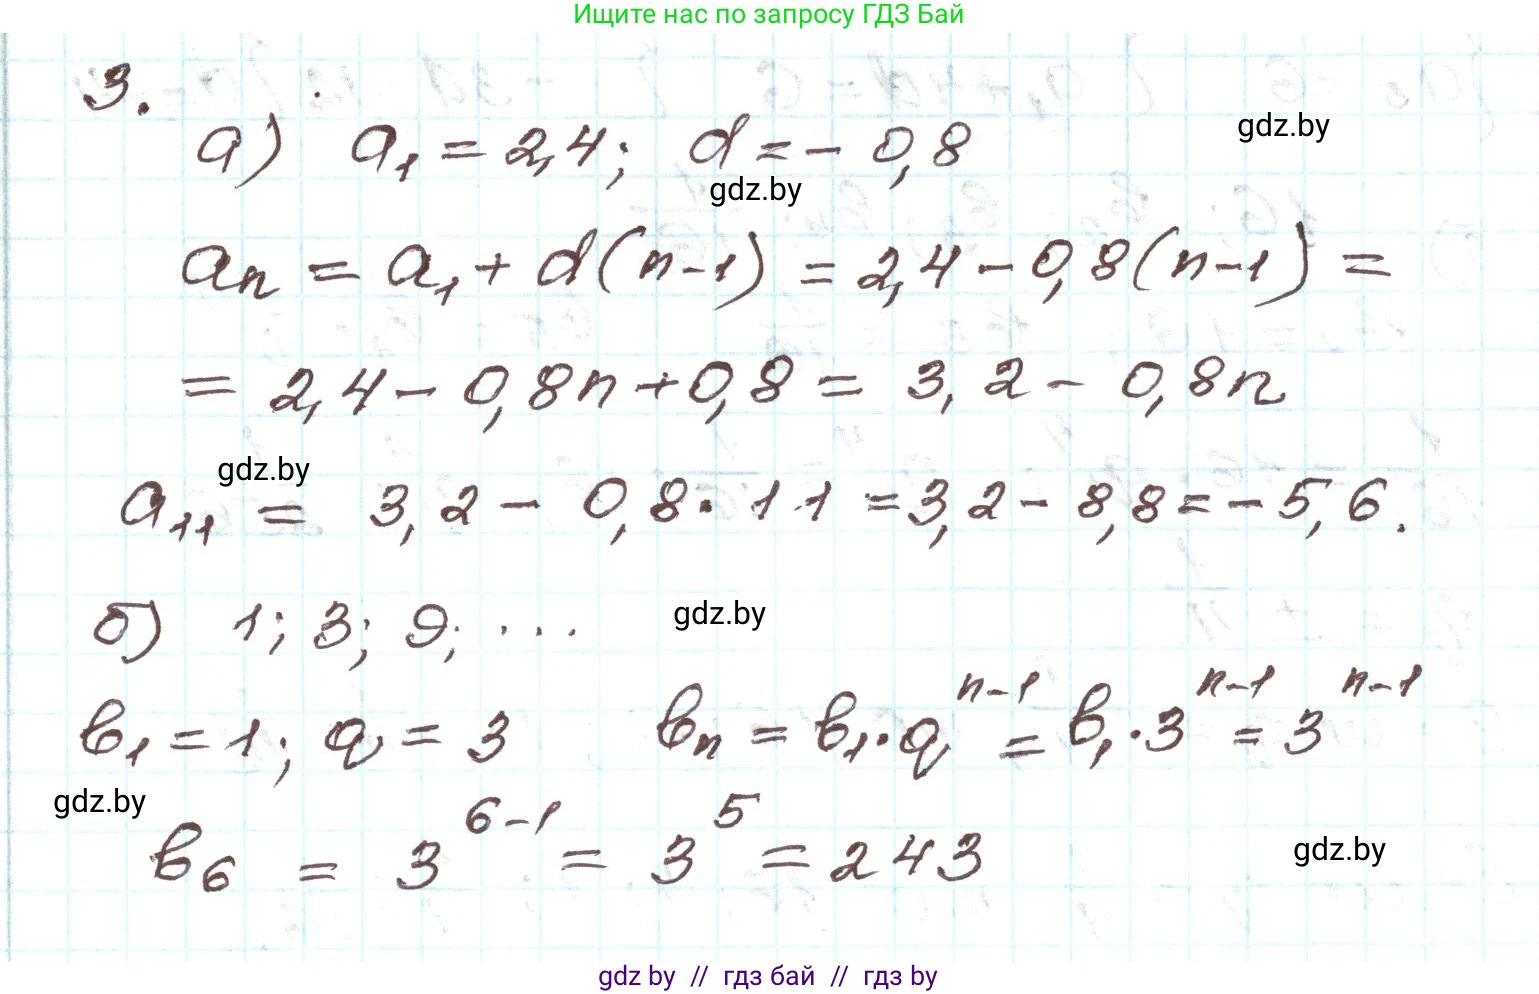 Ищите нас по запросу ГДЗ Бай
3.
а) a₁ = 2,4; d = - 0,8
gdz.by
gdz.by
aₙ = a₁ + d(n-1) = 2,4 - 0,8(n-1) =
= 2,4 - 0,8n + 0,8 = 3,2 - 0,8n
gdz.by
a₁₁ = 3,2 - 0,8 · 11 = 3,2 - 8,8 = - 5,6.
б) 1; 3; 9; ...
gdz.by
b₁ = 1; q = 3 bₙ = b₁ · qⁿ⁻¹ = b₁ · 3ⁿ⁻¹ = 3ⁿ⁻¹
gdz.by
b₆ = 3⁶⁻¹ = 3⁵ = 243
gdz.by
gdz by // гдз бай // гдз by